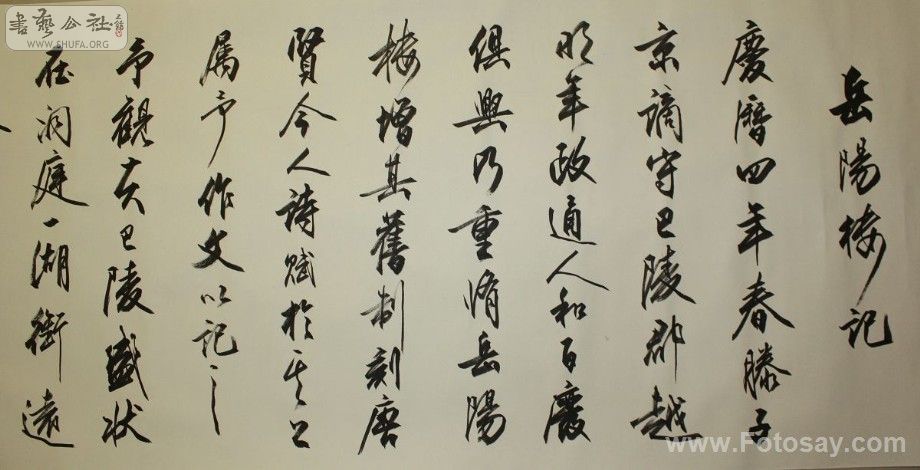 岳陽楼記
慶曆四年春滕子
京謫守巴陵郡越
明年政通人和百廢
俱興乃重脩岳陽
楼增其舊制刻唐
賢今人詩賦於其上
属予作文以記之
予觀夫巴陵盛状
在洞庭一湖銜遠
書藝公社
WWW.SHUFA.ORG
www.Fotosay.com